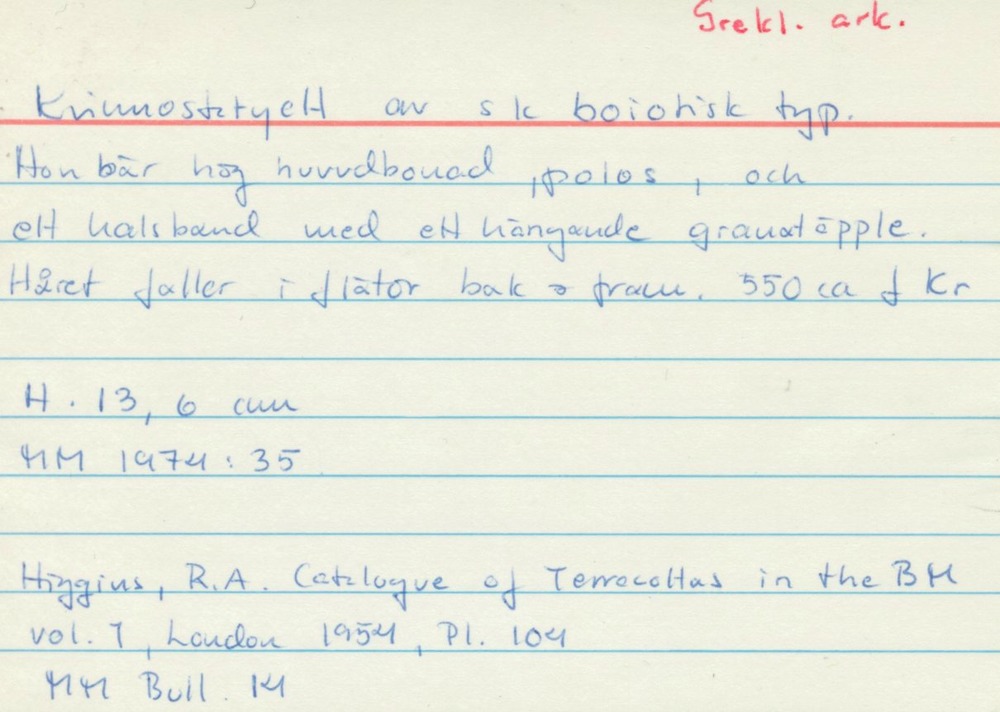 Grekl. ark.
Kvinnostatyett av sk boiotisk typ.
Hon bär hög huvudbonad, polos, och
ett halsband med ett hängande granatäpple.
Håret faller i flätor bak o fram. 550 ca f Kr
H. 13,6 cm
MM 1974:35
Higgins, R.A. Catalogue of Terracottas in the BM
vol. 1, London 1954, Pl. 104
MM Bull. 14